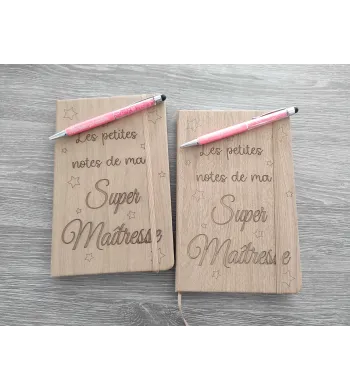 Les petites
notes de ma
Super
Maîtresse
Les petites
notes de ma
Super
Maîtresse